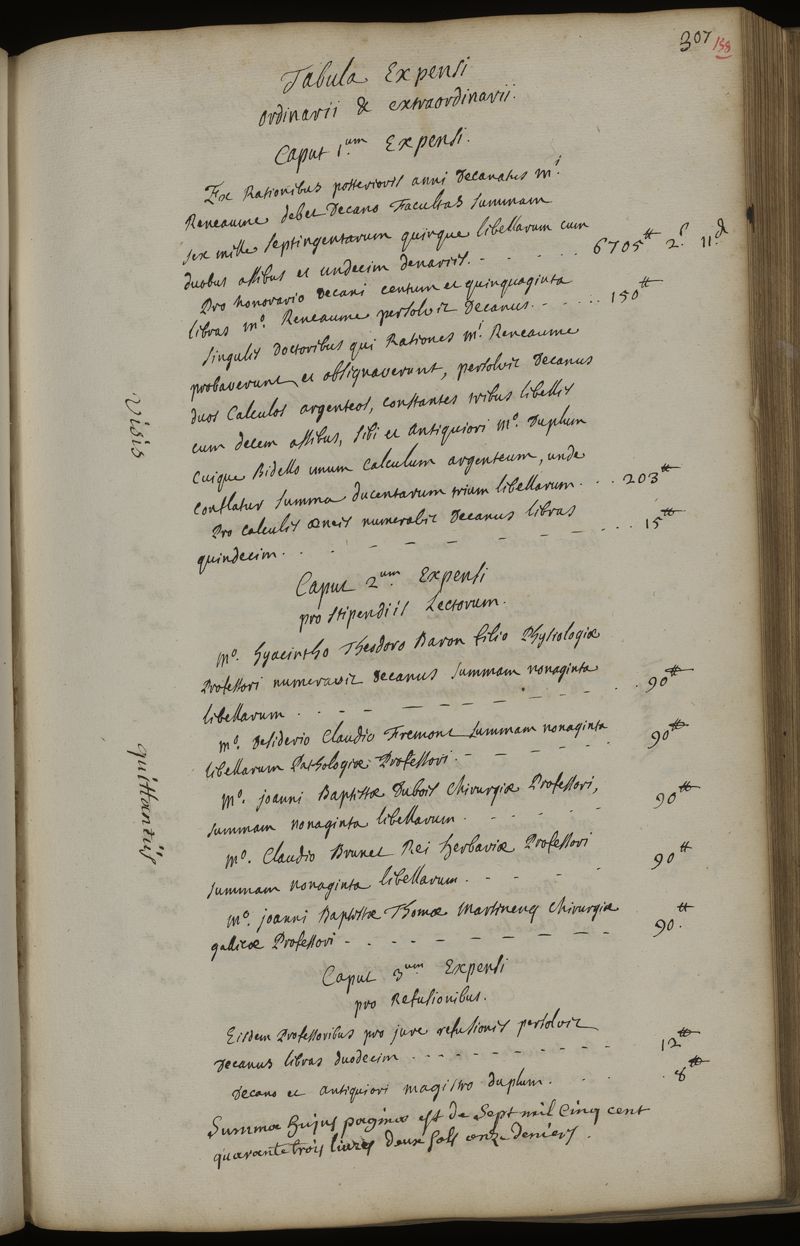 307 158
Tabula Expensi
ordinarii & extraordinarii.
Caput 1.um Expensi.
Ex Rationibus posterioris anni Decanatus M.i
Reneaume debet Decano Facultas summam
sex mille septingentarum quinque libellarum cum
duobus assibus et undecim denariis. - - - - . . 6705tt 2.s 11.d
Pro honorario Decani centum et quinquaginta
libras M.o Reneaume persolvit Decanus. - - . . . 150tt
Singulis Doctoribus qui Rationes M.i Reneaume
probaverunt et obsignaverunt, persolvit Decanus
duos Calculos argenteos, constantes tribus libellis
cum decem assibus, sibi et antiquiori M.o Duplum
Cuique Bidello unum calculum argenteum, unde
Conflatur summa ducentarum trium libellarum. . . 203tt
Pro calculis æneis numerabit Decanus libras
quindecim . . . - - - - - - . . . 15tt
Visis
Caput 2.um Expensi
pro stipendiis Lectorum.
M.o Hyacintho Theodoro Baron filio Physiologiæ
Professori numeravit Decanus summam nonaginta
libellarum . . - - - - - - - - . . 90tt
M.o Desiderio Claudio Fremont summam nonaginta
libellarum Pathologiæ Professori. - - - - - 90tt
M.o Joanni Baptistæ Dubois Chirurgiæ Professori,
summam nonaginta libellarum. - - - - 90tt
M.o Claudio Brunet Rei herbariæ Professori
summam nonaginta libellarum . - - - - 90tt
M.o Joanni Baptistæ Thomæ Martinenq Chirurgiæ
gallicæ Professori - . . - - - - - - - 90.tt
quittantiis
Caput 3.um Expensi
pro Refusionibus.
Eisdem Professoribus pro jure refusionis persolvit
Decanus libras duodecim . . . - - - - - - 12tt
Decano et antiquiori magistro duplum. - . . . 8tt
Summa hujus paginæ est de Sept mil Cinq cent
quarante trois livres deux sols onze deniers .